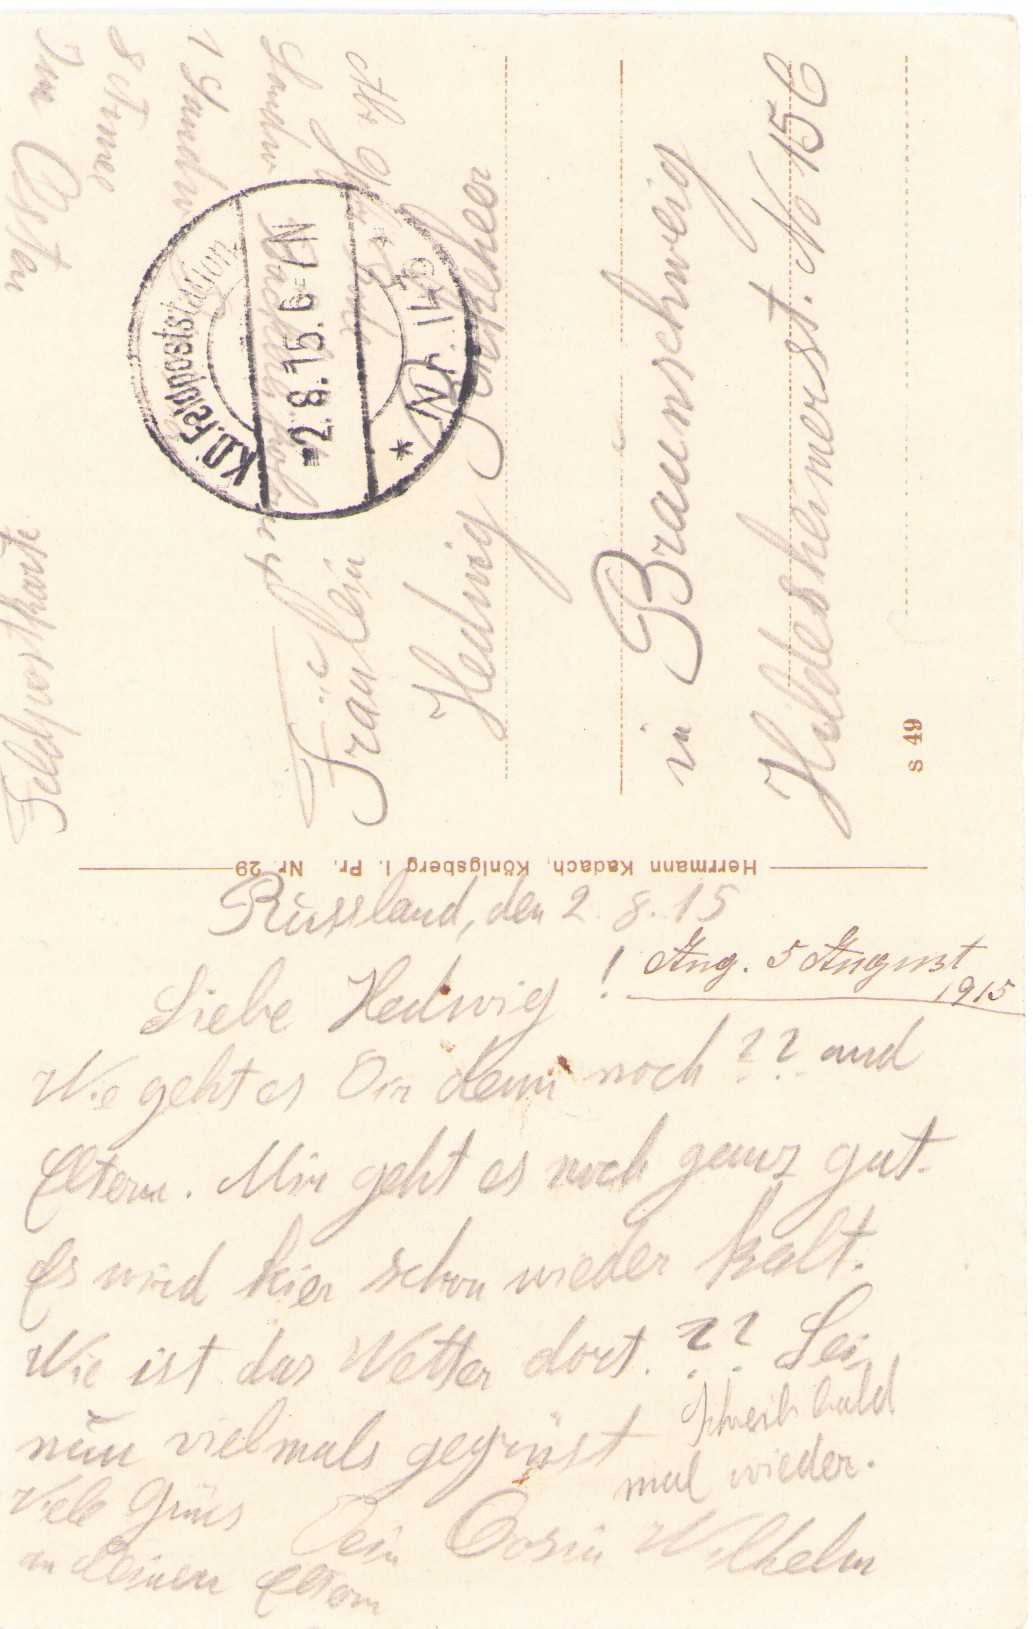 Feldpostkarte
Im Osten
8 Armee
Fräulein
Hedwig
in Braunschweig
Hildesheimerst. No 156
K.D. Feldpoststation
-2.8.15.6-7N
* Nr. 145 *
S 49
Herrmann Kadach, Königsberg i. Pr. Nr. 29
Russland, den 2. 8. 15
Ang. 5 August
1915
Liebe Hedwig!
Wie geht es Dir denn noch ?? und
Eltern. Mir geht es noch ganz gut.
Es wird hier schon wieder kalt.
Wie ist das Wetter dort. ?? Sei
nun vielmals gegrüst
Schreib bald
mal wieder.
Dein Cosin Wilhelm
Viele Grüs
an Deinen Eltern